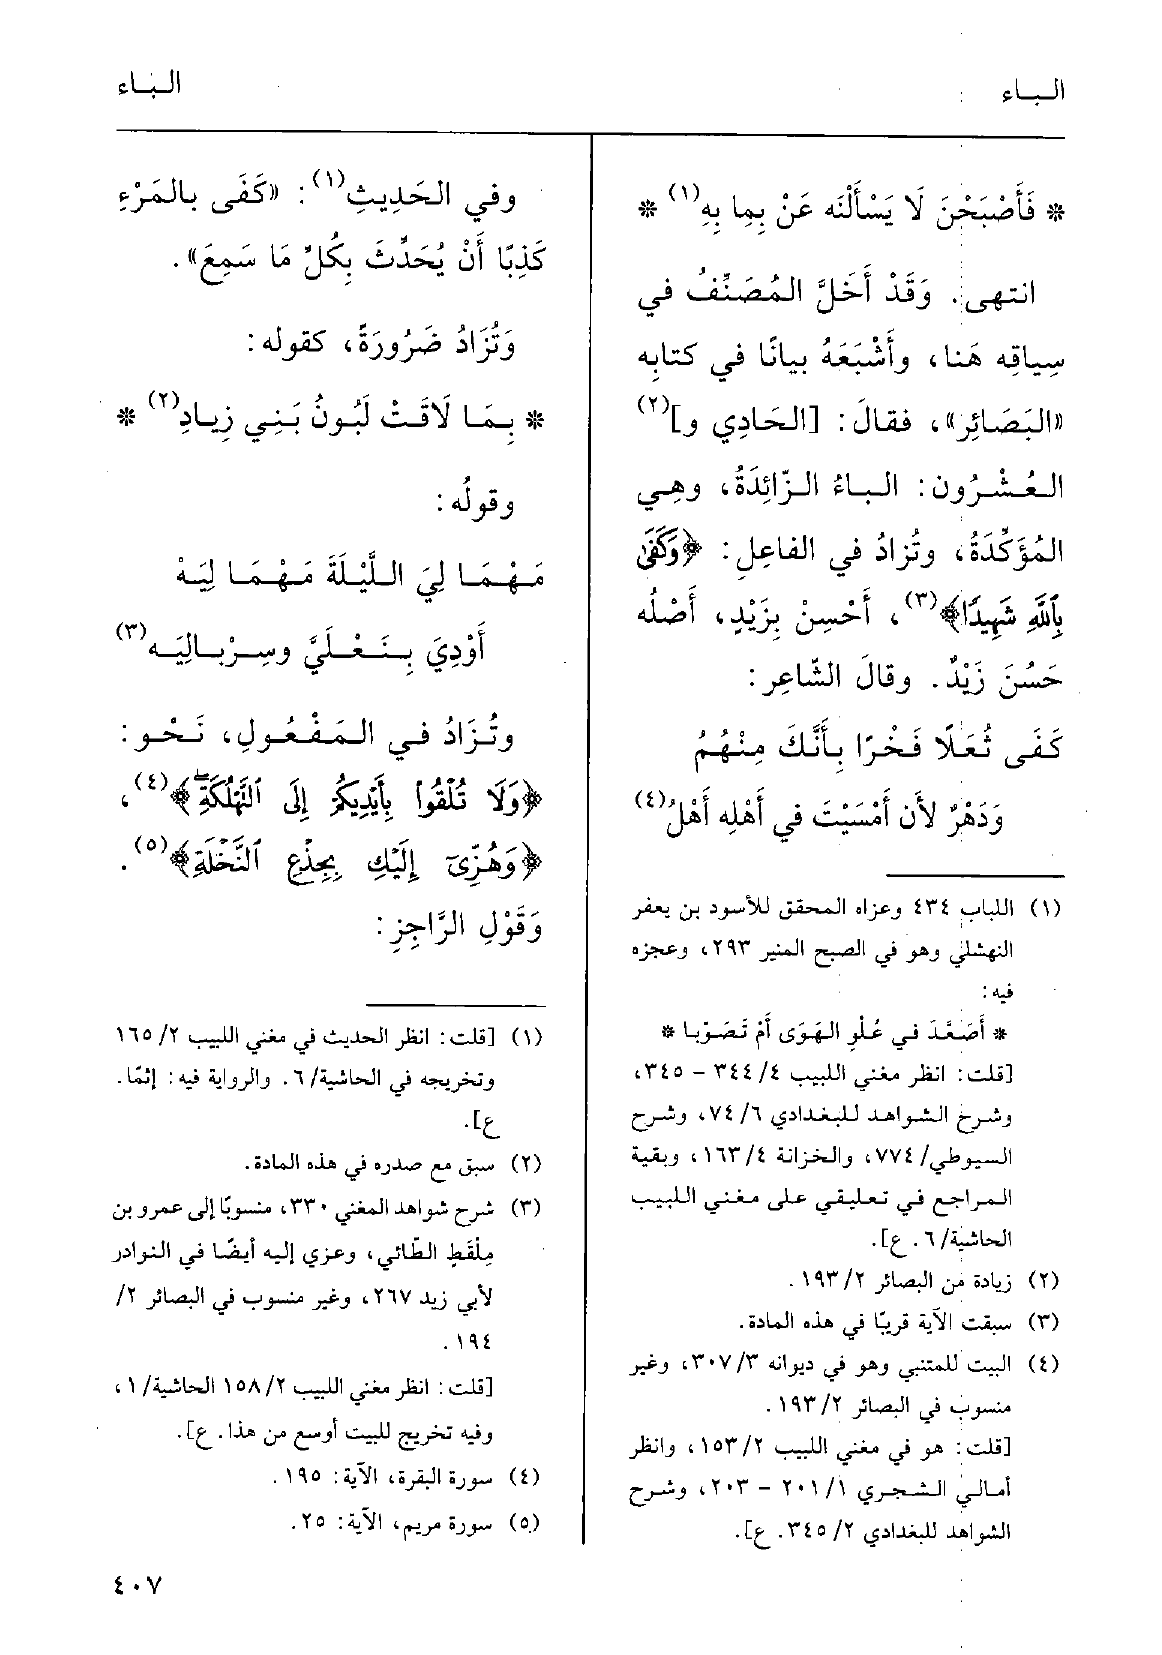 الباء
الباء
* فَأَصْبَحْنَ لَا يَسْأَلْنَه عَنْ بِما بِهِ(١) *
انتهى. وَقَدْ أَخَلَّ المُصَنِّفُ في
سِياقِه هَنا، وأَشْبَعَهُ بيانًا في كتابِه
«البَصَائِر»، فقالَ: [الحَادِي و](٢)
العُشْرُون: الباءُ الزّائِدَةُ، وهِي
المُؤَكِّدَةُ، وتُزادُ في الفاعِلِ: ﴿وَكَفَىٰ
بِٱللَّهِ شَهِيدًا﴾(٣)، أَحْسِنْ بِزَيْدٍ، أَصْلُه
حَسُنَ زَيْدٌ. وقالَ الشّاعِر:
كَفَى ثُعَلًا فَخْرًا بِأَنَّكَ مِنْهُمُ
وَدَهْرٌ لأن أَمْسَيْتَ في أَهْلِه أَهْلُ(٤)
(١) اللباب ٤٣٤ وعزاه المحقق للأسود بن يعفر
النهشلي وهو في الصبح المنير ٢٩٣، وعجزه
فيه:
* أَصَعَّدَ في عُلْوِ الهَوَى أَمْ تَصَوَّبا *
[قلت: انظر مغني اللبيب ٤/ ٣٤٤ - ٣٤٥،
وشرح الشواهد للبغدادي ٦/ ٧٤، وشرح
السيوطي/ ٧٧٤، والخزانة ٤/ ١٦٣، وبقية
المراجع في تعليقي على مغني اللبيب
الحاشية/ ٦. ع].
(٢) زيادة من البصائر ٢/ ١٩٣.
(٣) سبقت الآية قريبًا في هذه المادة.
(٤) البيت للمتنبي وهو في ديوانه ٣/ ٣٠٧، وغير
منسوب في البصائر ٢/ ١٩٣.
[قلت: هو في مغني اللبيب ٢/ ١٥٣، وانظر
أمالي الشجري ١/ ٢٠١ - ٢٠٣، وشرح
الشواهد للبغدادي ٢/ ٣٤٥. ع].
وفي الحَدِيثِ(١): «كَفَى بالمَرْءِ
كَذِبًا أَنْ يُحَدِّثَ بِكُلِّ مَا سَمِعَ».
وَتُزَادُ ضَرُورَةً، كقوله:
* بِمَا لَاقَتْ لَبُونُ بَنِي زِيادِ(٢) *
وقولُه:
مَهْمَا لِيَ اللَّيْلَةَ مَهْمَا لِيَهْ
أَوْدِيَ بِنَعْلَيَّ وسِرْبالِيَه(٣)
وتُزَادُ في المَفْعُولِ، نَحْو:
﴿وَلَا تُلْقُوا۟ بِأَيْدِيكُمْ إِلَى ٱلتَّهْلُكَةِ﴾(٤)،
﴿وَهُزِّىٓ إِلَيْكِ بِجِذْعِ ٱلنَّخْلَةِ﴾(٥).
وَقَوْلِ الرَّاجِزِ:
(١) [قلت: انظر الحديث في مغني اللبيب ٢/ ١٦٥
وتخريجه في الحاشية/ ٦. والرواية فيه: إثمًا.
ع].
(٢) سبق مع صدره في هذه المادة.
(٣) شرح شواهد المغني ٣٣٠، منسوبًا إلى عمرو بن
مِلْقَطٍ الطّائي، وعزي إليه أيضًا في النوادر
لأبي زيد ٢٦٧، وغير منسوب في البصائر ٢/
١٩٤.
[قلت: انظر مغني اللبيب ٢/ ١٥٨ الحاشية/ ١،
وفيه تخريج للبيت أوسع من هذا. ع].
(٤) سورة البقرة، الآية: ١٩٥.
(٥) سورة مريم، الآية: ٢٥.
٤٠٧